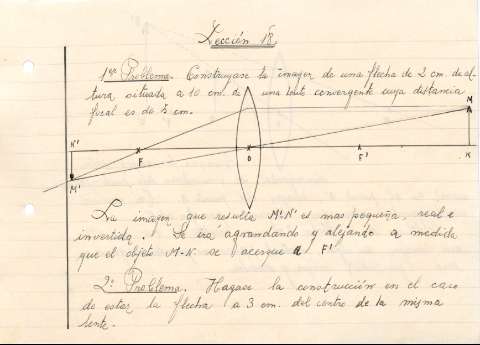 Lección 18
1er Problema. Construyase la imagen de una flecha de 2 cm. de al-
tura situada a 10 cm. de una lente convergente cuya distancia
focal es de 5 cm.
M
N'
F
O
F'
M'
La imagen que resulta M'-N' es mas pequeña, real e
invertida. Se irá agrandando y alejando a medida
que el objeto M-N. se acerque a F'
2º Problema. Hagase la construcción en el caso
de estar la flecha a 3 cm. del centro de la misma
lente.